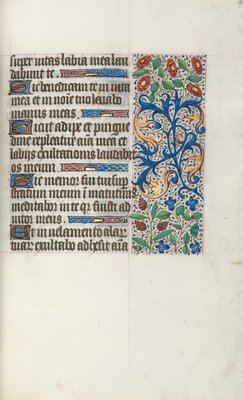 super vitas labia mea lau
dabunt te.
Sic benedicam te in vita
mea et in noie tuo levabo
manus meas.
Sicut adipe et pingue
dine repleatur aia mea et
labiis exultationis laudabit
os meum.
Sic memor fui tui sup
stratum meum in matutinis
meditabor in te qr fuisti ad
iutor meus.
Et in velamento alar
tuar exultabo adhesit aia